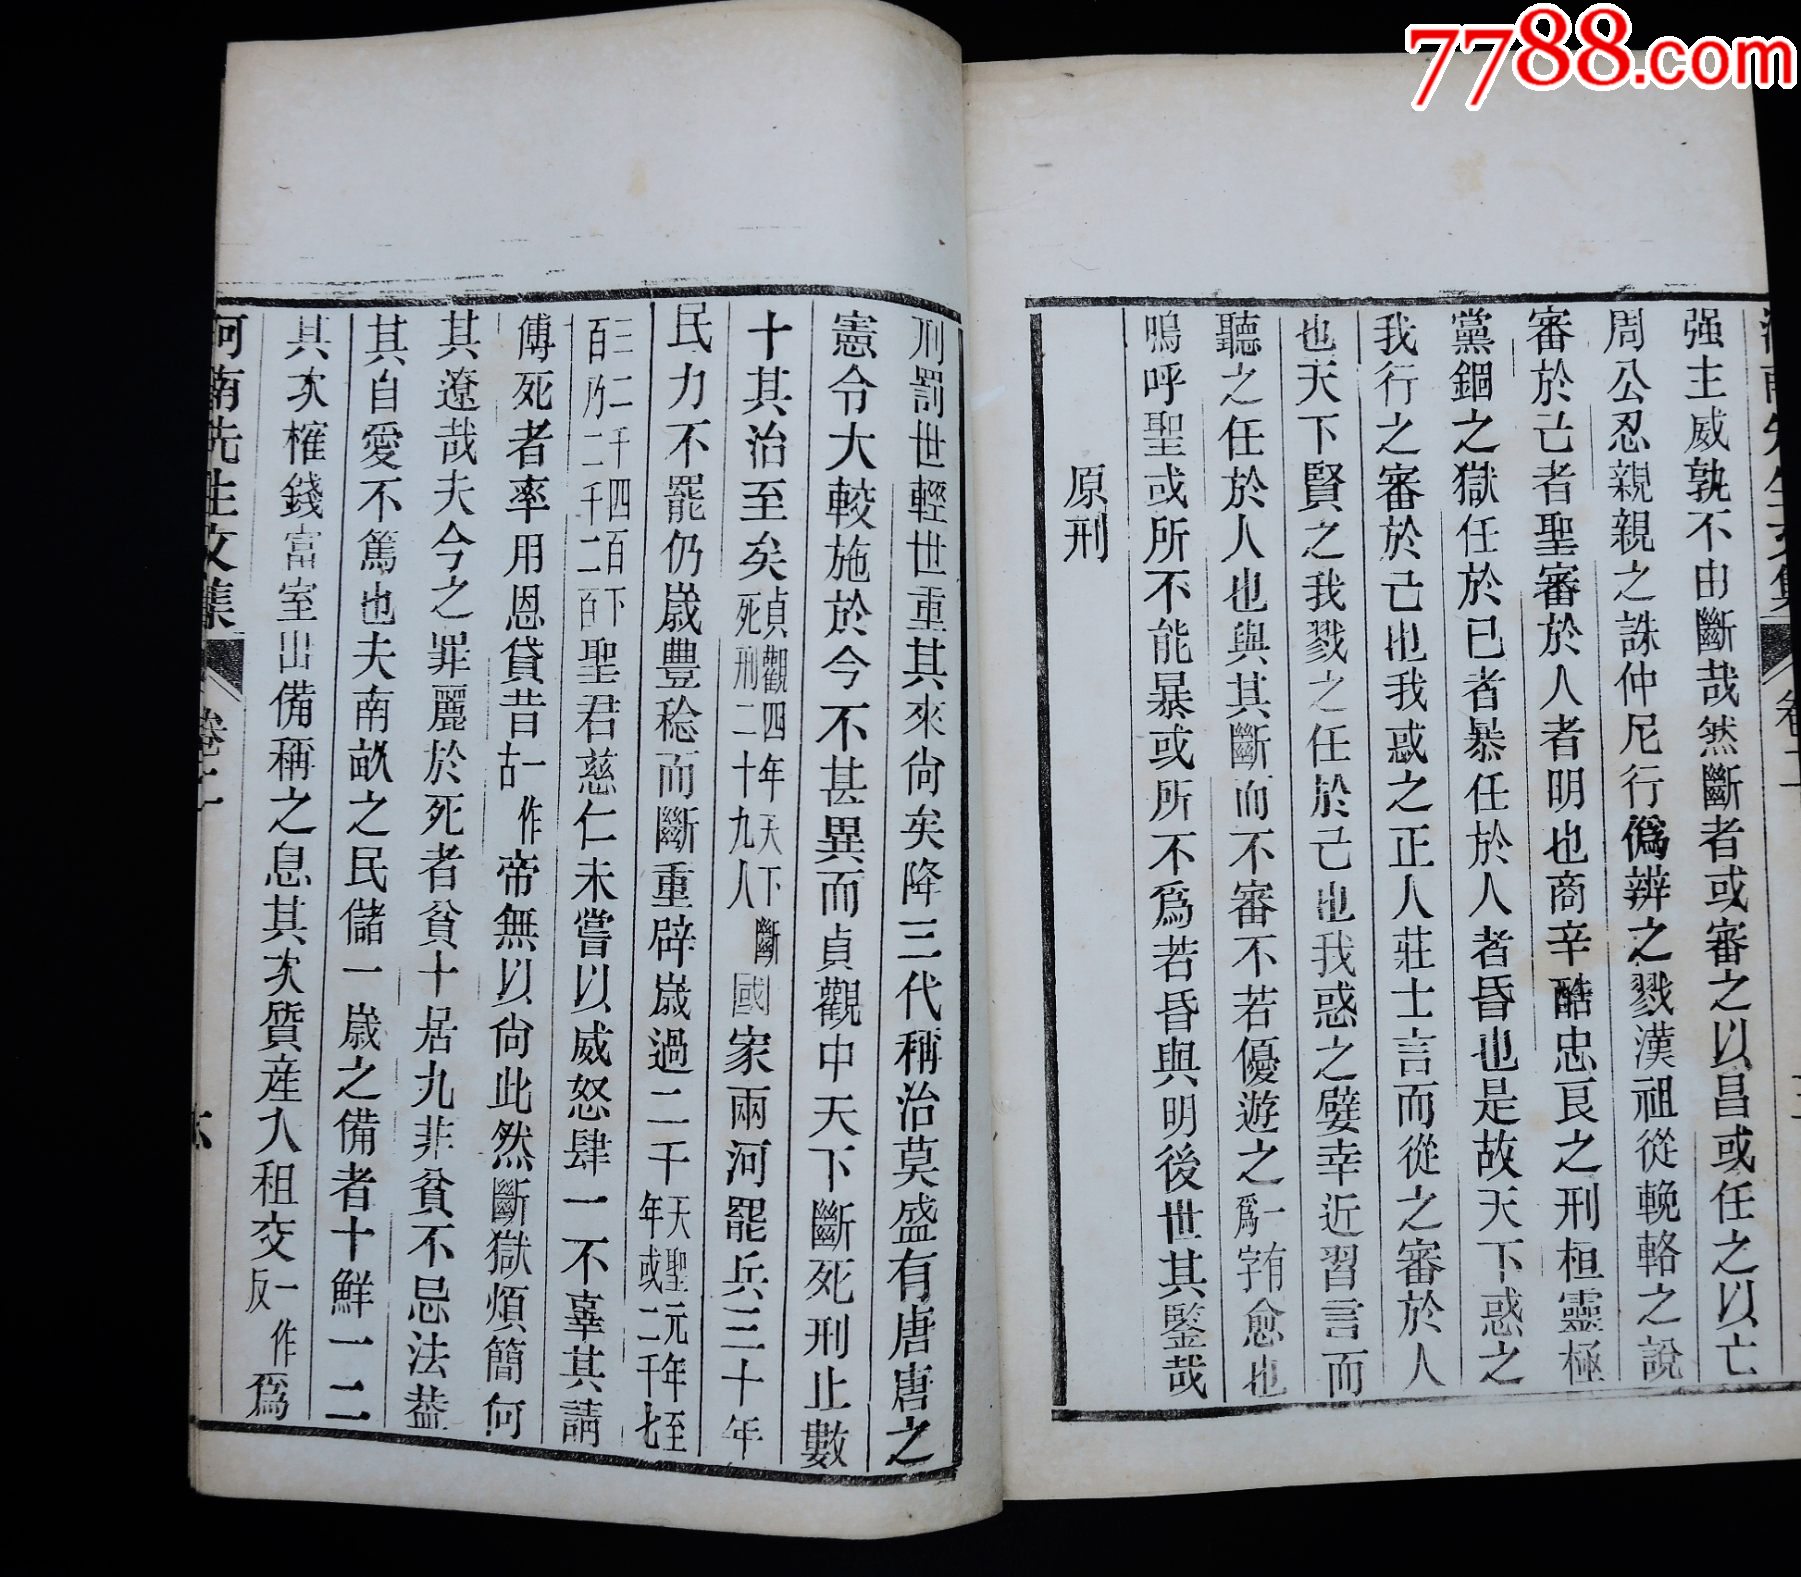 7788.com
强主威孰不由斷哉然斷者或審之以昌或任之以亡
周公忍親親之誅仲尼行僞辨之戮漢祖從輓輅之說
審於己者聖審於人者明也商辛酷忠良之刑桓靈極
黨錮之獄任於已者暴任於人者昏也是故天下惑之
我行之審於己也我惑之正人莊士言而從之審於人
也天下賢之我戮之任於己也我惑之嬖幸近習言而
聽之任於人也與其斷而不審不若優遊之一有爲字愈也
嗚呼聖或所不能暴或所不爲若昏與明後世其鑒哉
原刑
刑罰世輕世重其來尙矣降三代稱治莫盛有唐唐之
憲令大較施於今不甚異而貞觀中天下斷死刑止數
十其治至矣貞觀四年天下斷死刑二十九人國家兩河罷兵三十年
民力不罷仍歲豐稔而斷重辟歲過二千天聖元年至七年或二千
三二千四百下百乃二千二百聖君慈仁未嘗以威怒肆一不辜其請
傅死者率用恩貸昔一作古帝無以尙此然斷獄煩簡何
其遼哉夫今之罪麗於死者貧十居九非貧不忌法葢
其自愛不篤也夫南畝之民儲一歲之備者十鮮一二
其次榷錢富室出備稱之息其次質産入租交一作反爲
河南先生文集
卷二
六